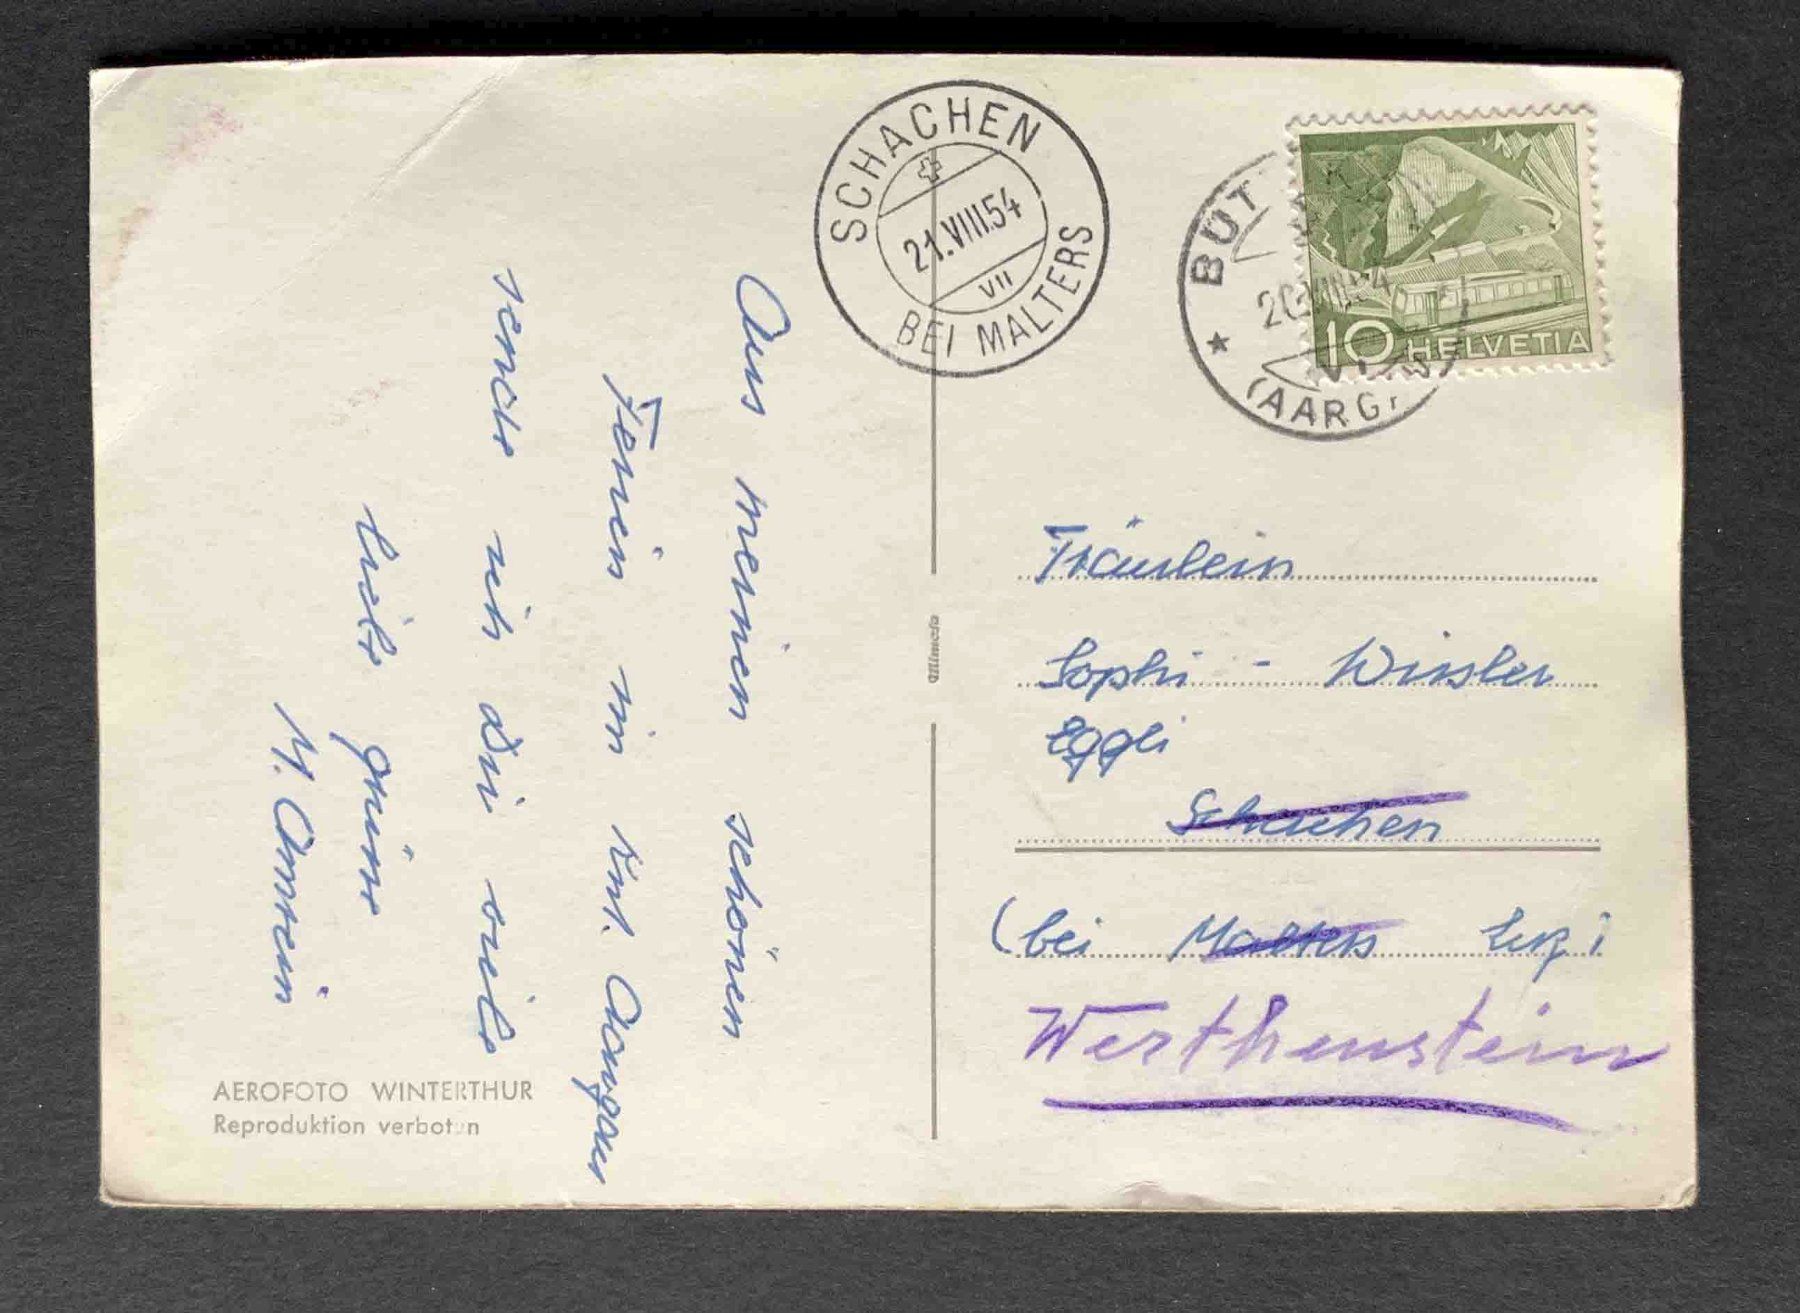 Aus meinen schönen
Ferien im Knt. Aargau
sende ich Dir viele
liebe grüsse
M. Amrein
AEROFOTO WINTERTHUR
Reproduktion verboten
SCHACHEN
21.VIII.54
VII
BEI MALTERS
BÜT
(AARG.
10 HELVETIA
Fräulein
Sophi - Winsler
Eggli
Schachen
(bei Malters Luz)
Werthenstein